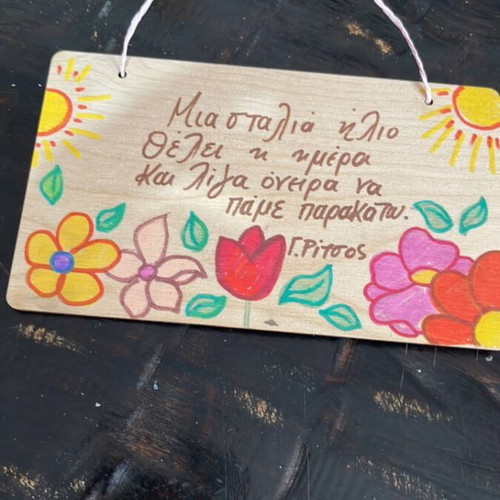 Μια σταλιά ήλιο
Θέλει η ημέρα
και λίγα όνειρα να
πάμε παρακάτω.
Γ. Ρίτσος